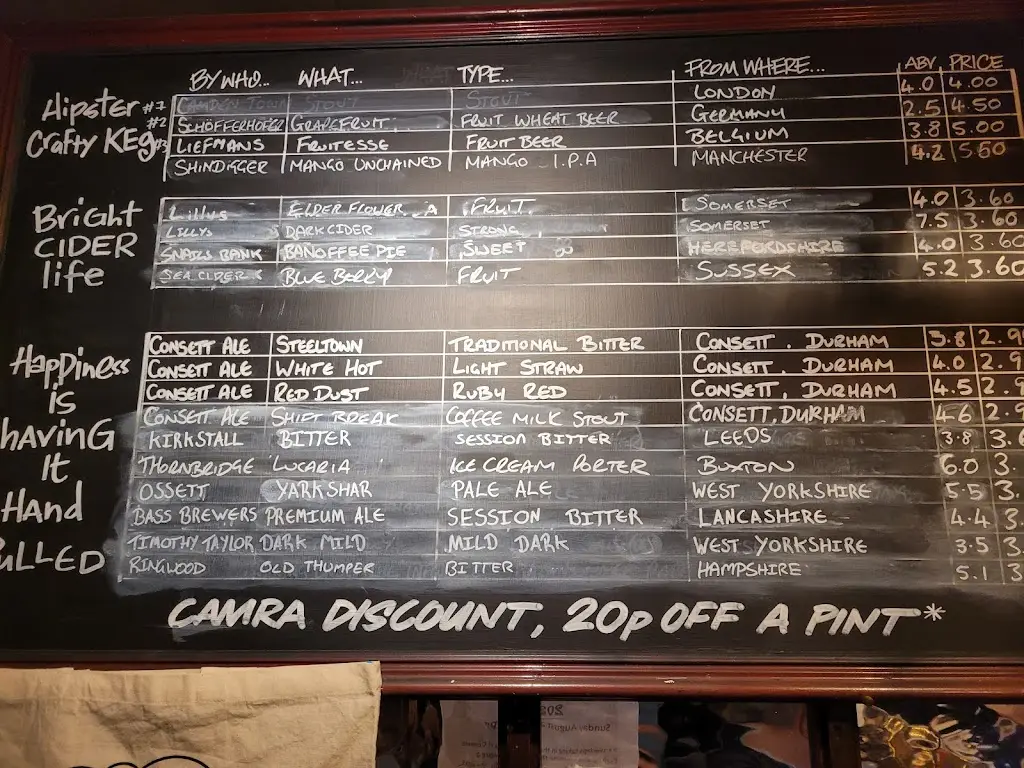 BY WHO... WHAT... TYPE... FROM WHERE... ABV PRICE
Hipster #1 CAMDEN TOWN STOUT STOUT LONDON 4.0 4.00
#2 SCHÖFFERHOFER GRAPEFRUIT FRUIT WHEAT BEER GERMANY 2.5 4.50
Crafty KEG #3 LIEFMANS FRUITESSE FRUIT BEER BELGIUM 3.8 5.00
SHINDIGGER MANGO UNCHAINED MANGO I.P.A MANCHESTER 4.2 5.50
Bright LILLYS ELDER FLOWER FRUIT SOMERSET 4.0 3.60
CIDER LILLYS DARK CIDER STRONG SOMERSET 7.5 3.60
SNAILS BANK BANOFFEE PIE SWEET HEREFORDSHIRE 4.0 3.60
life SEA CIDER BLUE BERRY FRUIT SUSSEX 5.2 3.60
CONSETT ALE STEELTOWN TRADITIONAL BITTER CONSETT, DURHAM 3.8 2.9
Happiness CONSETT ALE WHITE HOT LIGHT STRAW CONSETT, DURHAM 4.0 2.9
is CONSETT ALE RED DUST RUBY RED CONSETT, DURHAM 4.5 2.9
CONSETT ALE SHIFT BREAK COFFEE MILK STOUT CONSETT, DURHAM 4.6 2.9
hAVINg KIRKSTALL BITTER SESSION BITTER LEEDS 3.8 3.
It THORNBRIDGE LUCARIA ICE CREAM PORTER BUXTON 6.0 3.
HAnd OSSETT YARKSHAR PALE ALE WEST YORKSHIRE 5.5 3.
BASS BREWERS PREMIUM ALE SESSION BITTER LANCASHIRE 4.4 3.
ULLED TIMOTHY TAYLOR DARK MILD MILD DARK WEST YORKSHIRE 3.5 3
RINGWOOD OLD THUMPER BITTER HAMPSHIRE 5.1 3
CAMRA DISCOUNT, 20p OFF A PINT*